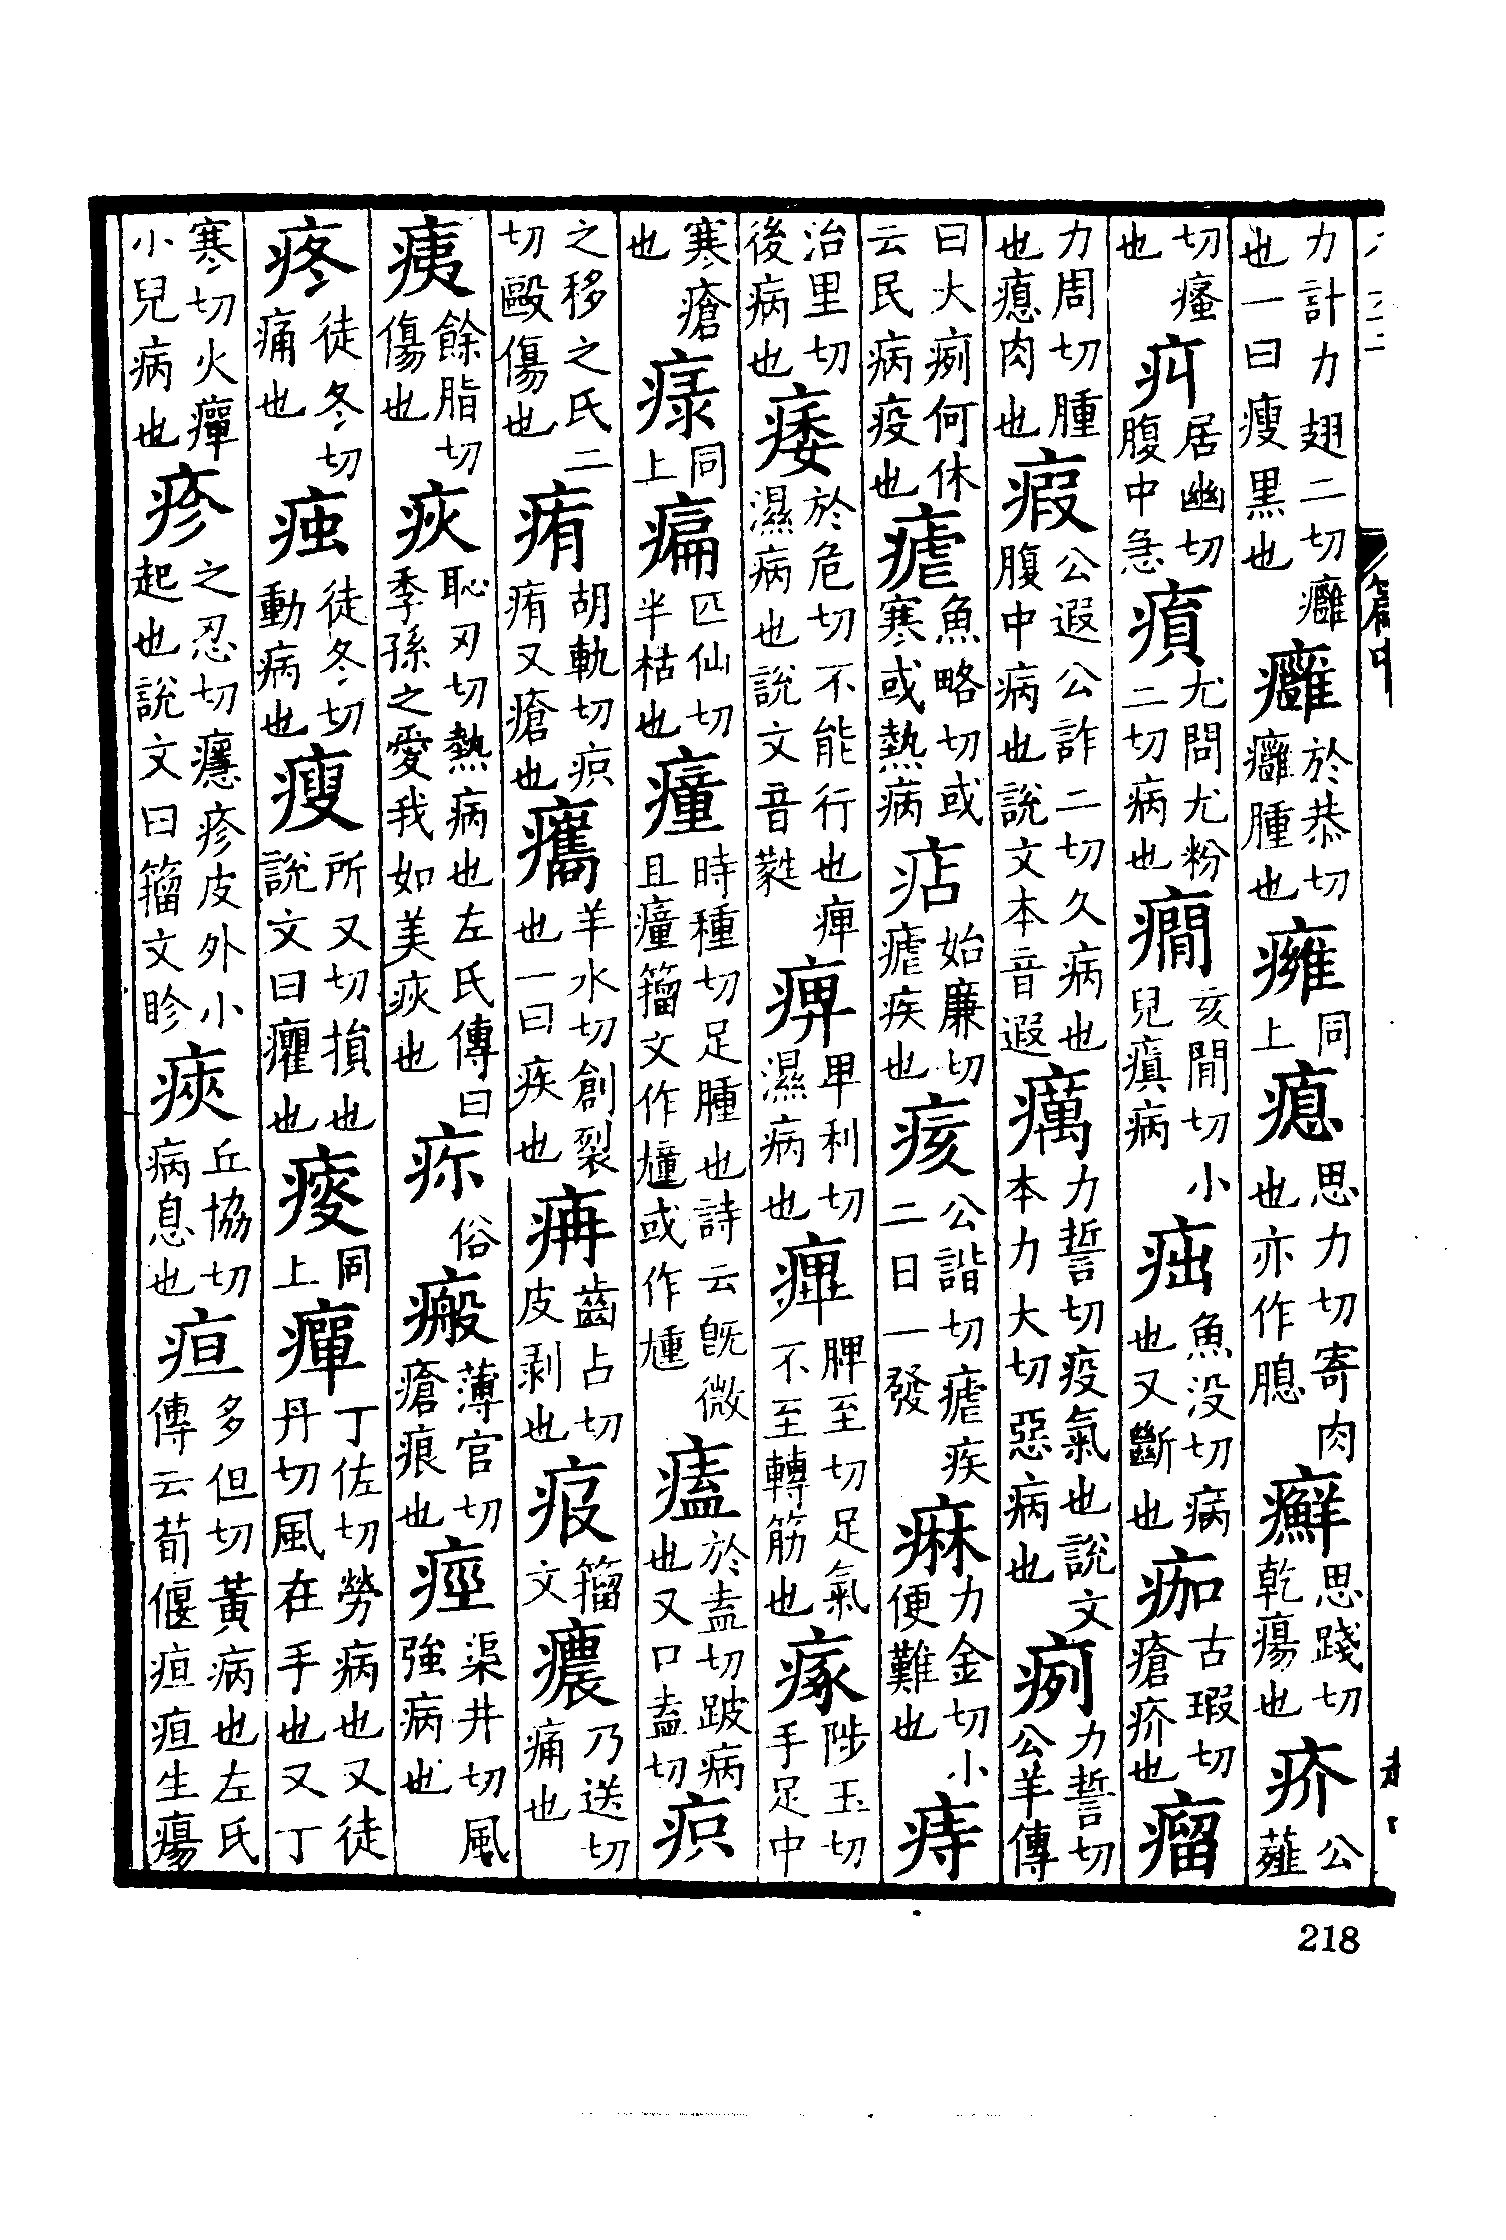 力計力翅二切癰也一曰瘦黒也 癰 於恭切癰腫也 癕 同上 瘜 思力切寄肉也亦作䐖 癬 思踐切乾瘍也 疥 公薤
切瘙也 㽱 居幽切腹中急 𤸫 尤問尤粉二切病也 癇 亥閒切小兒瘨病 魚没切病也又斷也 痂 古瑕切瘡疥也 瘤
力周切腫也瘜肉也 瘕 公遐公詐二切久病也腹中病也說文本音遐 癘 力誓切疫氣也說文本力大切惡病也 㾐 力誓切公羊傳
曰大㾐何休云民病疫也 瘧 魚略切或寒或熱病 痁 始廉切瘧疾也 痎 公諧切瘧疾二日一發 痳 力金切小便難也 痔
治里切後病也 痿 於危切不能行也痺濕病也說文音㽔 痹 畀利切濕病也 痺 脾至切足氣不至轉筋也 瘃 陟玉切手足中
寒瘡也 同上 㾫 匹仙切半枯也 瘇 時種切足腫也詩云旣微且瘇籀文作㣫或作尰 於盍切跛病也又口盍切 疻
之移之氏二切毆傷也 痏 胡軌切疻痏又瘡也 羊水切創裂也一曰疾也 齒占切皮剥也 籀文 癑 乃送切痛也
痍 餘脂切傷也 疢 恥刃切熱病也左氏傳曰季孫之愛我如美疢也 俗 瘢 薄官切瘡痕也 痙 渠井切風強病也
疼 徒冬切痛也 痋 徒冬切動病也 瘦 所又切損也說文曰臞也 同上 癉 丁佐切勞病也又徒丹切風在手也又丁
寒切火癉小兒病也 疹 之忍切癮疹皮外小起也說文曰籀文胗 㾜 丘協切病息也 疸 多但切黃病也左氏傳云荀偃疸疸生瘍
218